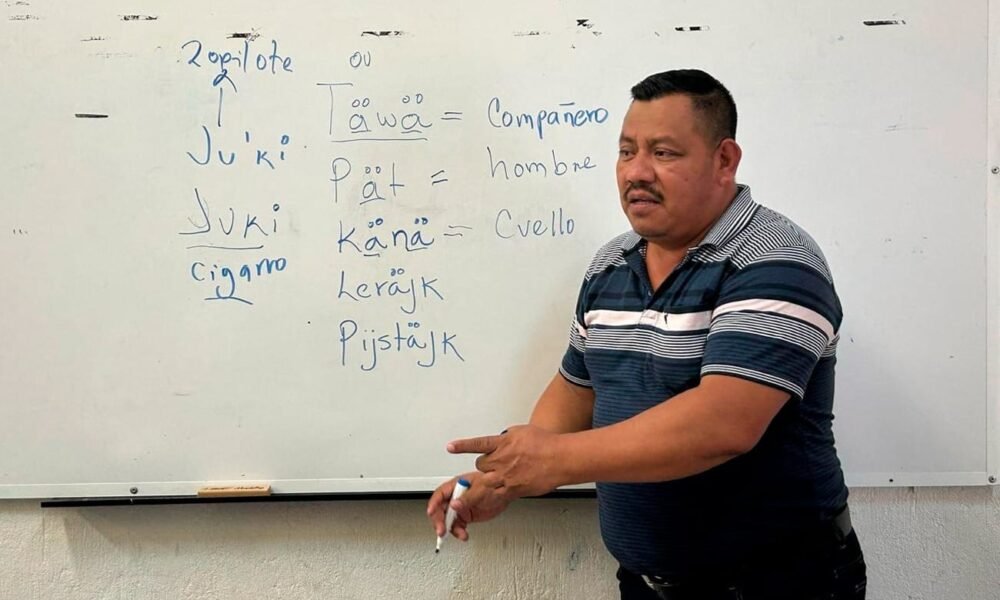 Zopilote
Ju'ki
Juki
cigarro
öü
Täwä = Compañero
Pät = hombre
känä = Cuello
Leräjk
Pijstäjk